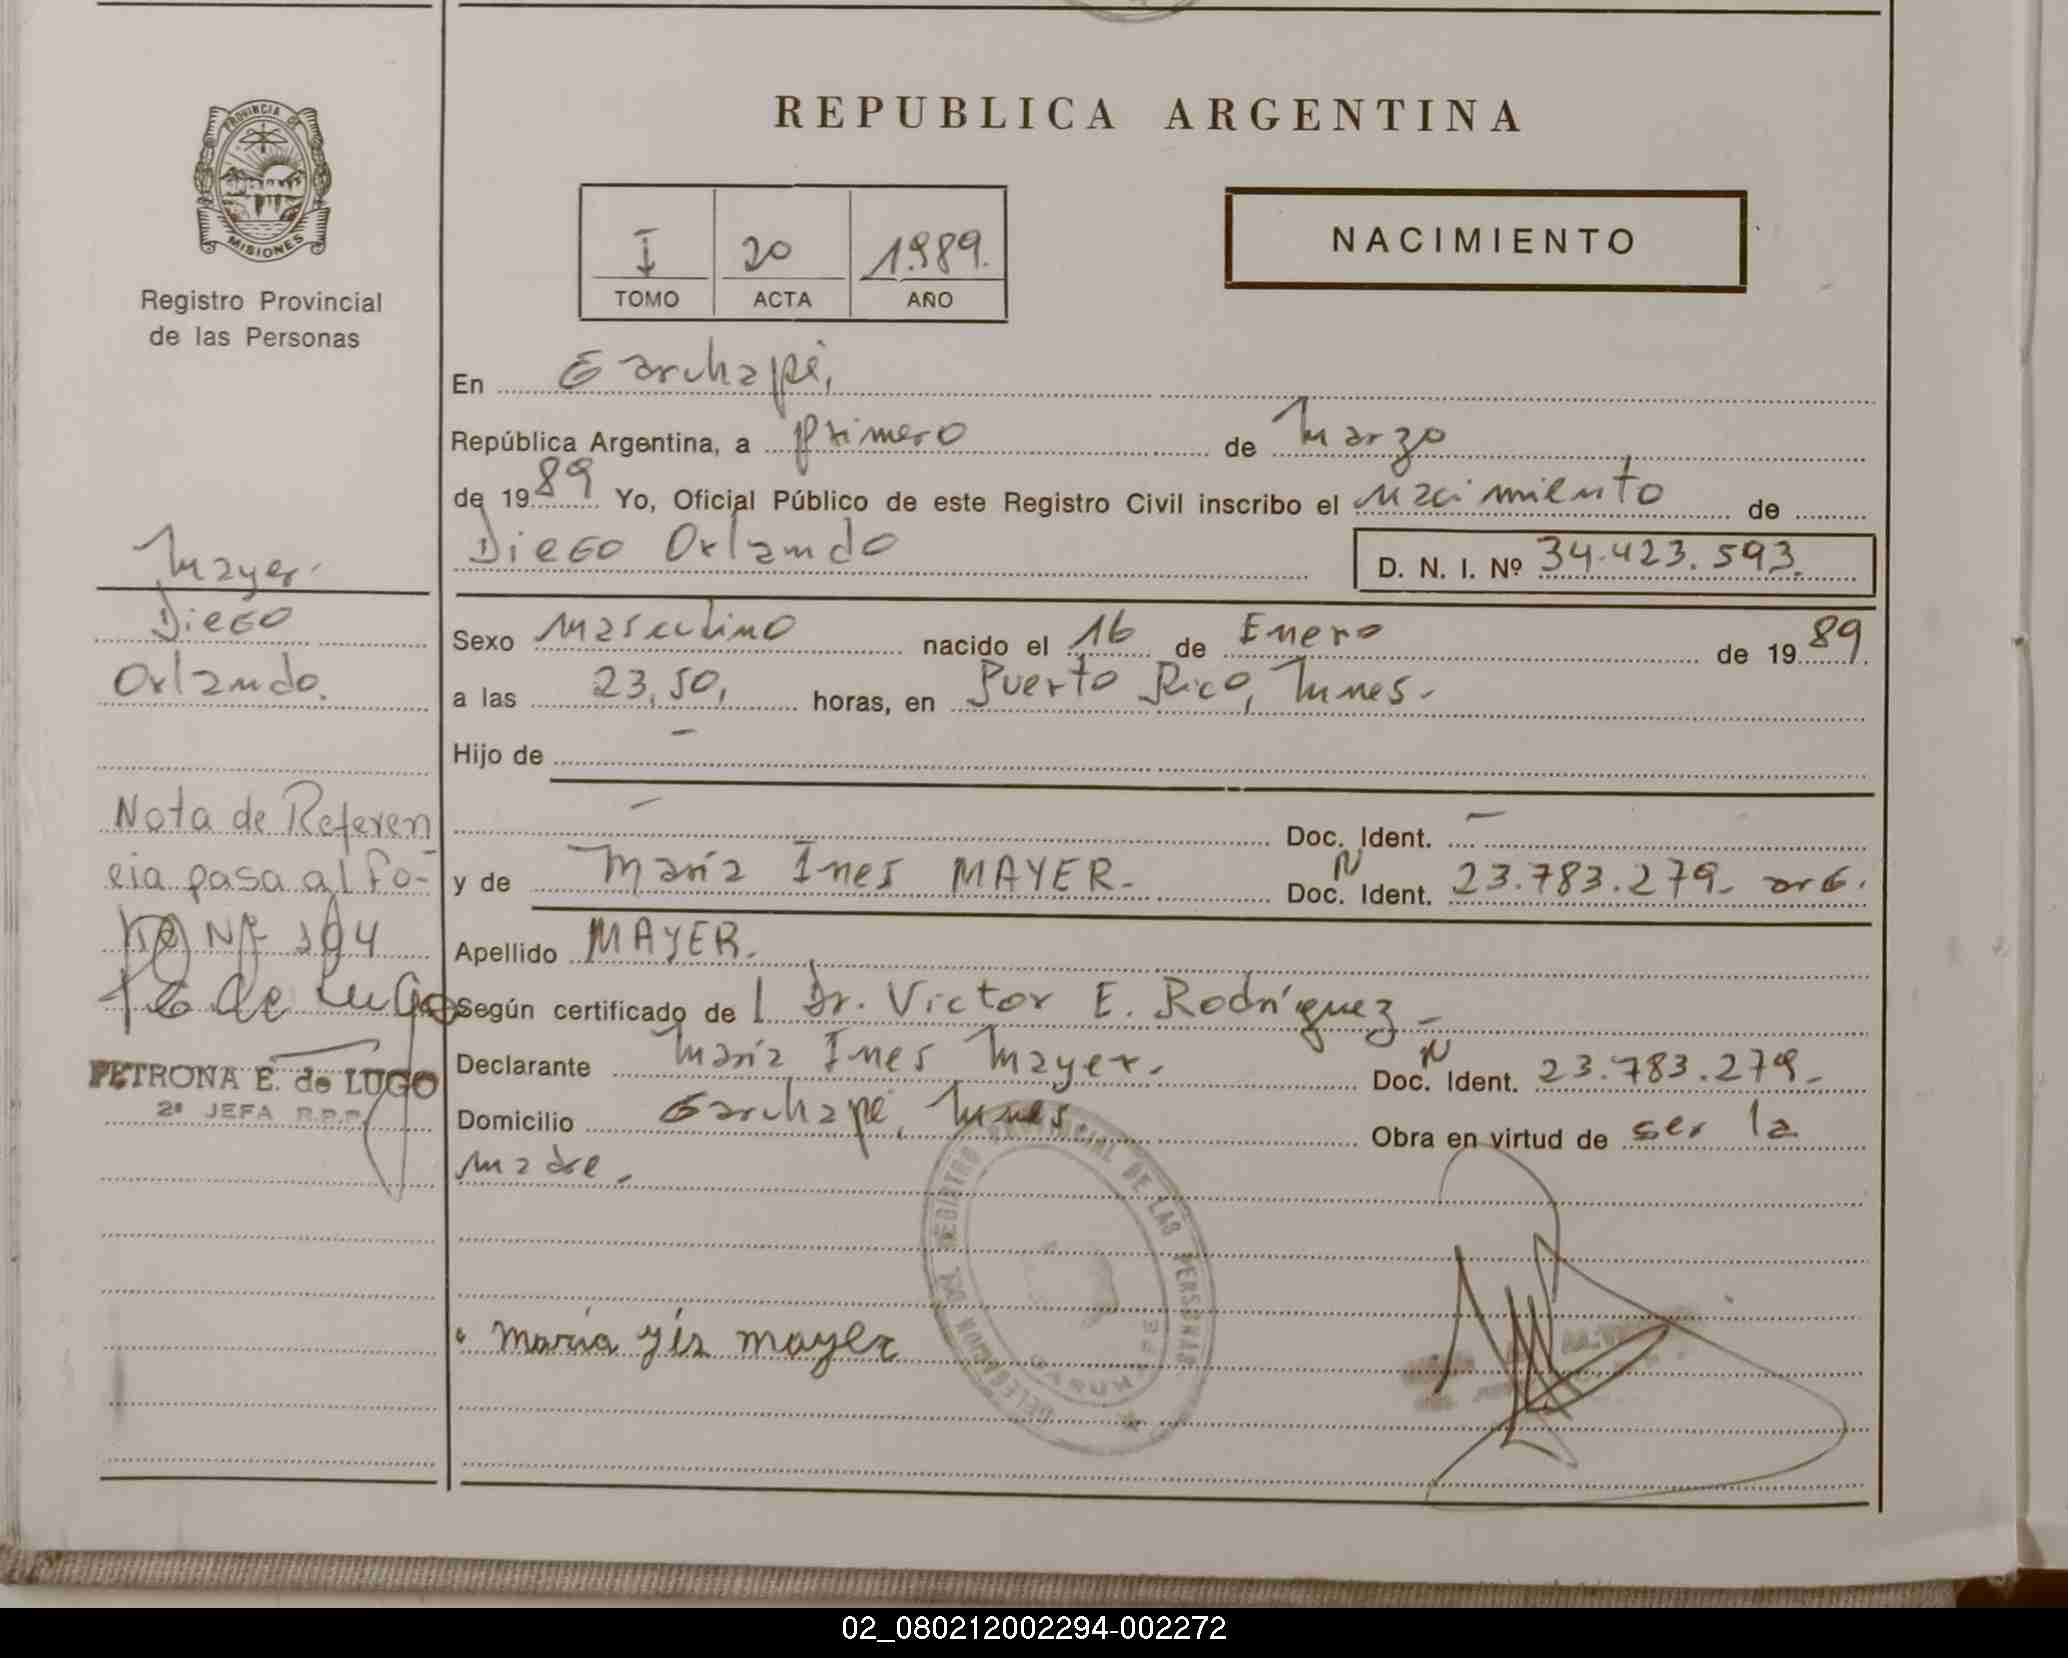 PROVINCIA DE
MISIONES
Registro Provincial
de las Personas
Mayer.
Diego
Orlando.
Nota de Referen
cia pasa al fo-
Nº 104
PETRONA E. de LUGO
2ª JEFA R.P.P.
REPUBLICA ARGENTINA
I 20 1989.
TOMO ACTA AÑO
NACIMIENTO
En Garuhapé,
República Argentina, a primero de Marzo
de 1989 Yo, Oficial Público de este Registro Civil inscribo el nacimiento de
Diego Orlando D. N. I. Nº 34.423.593.
Sexo Masculino nacido el 16 de Enero de 1989.
a las 23,50, horas, en Puerto Rico, Mnes.
Hijo de -
- Doc. Ident. -
y de María Ines MAYER- Doc. N Ident. 23.783.279- arG.
Apellido MAYER.
Según certificado de l Dr. Victor E. Rodríguez-
Declarante María Ines Mayer. Doc. N Ident. 23.783.279-
Domicilio Garuhapé, Mnes. Obra en virtud de ser la
madre.
DELEGACION DEL REGISTRO PROVINCIAL DE LAS PERSONAS
GARUHAPE
maría yés mayer
02_080212002294-002272